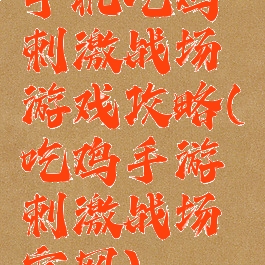 手机吃鸡
刺激战场
游戏攻略(
吃鸡手游
刺激战场